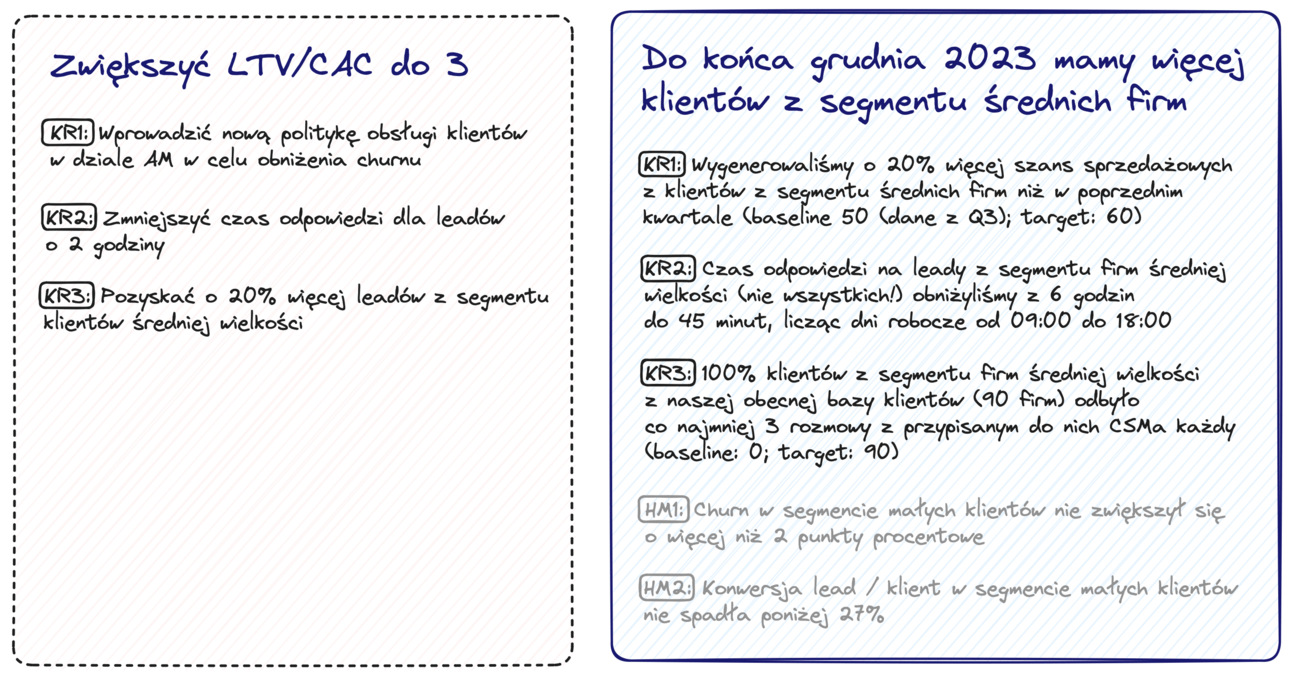 Zwiększyć LTV/CAC do 3
KR1: Wprowadzić nową politykę obsługi klientów
w dziale AM w celu obniżenia churnu
KR2: Zmniejszyć czas odpowiedzi dla leadów
o 2 godziny
KR3: Pozyskać o 20% więcej leadów z segmentu
klientów średniej wielkości
Do końca grudnia 2023 mamy więcej
klientów z segmentu średnich firm
KR1: Wygenerowaliśmy o 20% więcej szans sprzedażowych
z klientów z segmentu średnich firm niż w poprzednim
kwartale (baseline 50 (dane z Q3); target: 60)
KR2: Czas odpowiedzi na leady z segmentu firm średniej
wielkości (nie wszystkich!) obniżyliśmy z 6 godzin
do 45 minut, licząc dni robocze od 09:00 do 18:00
KR3: 100% klientów z segmentu firm średniej wielkości
z naszej obecnej bazy klientów (90 firm) odbyło
co najmniej 3 rozmowy z przypisanym do nich CSMa każdy
(baseline: 0; target: 90)
HM1: Churn w segmencie małych klientów nie zwiększył się
o więcej niż 2 punkty procentowe
HM2: Konwersja lead / klient w segmencie małych klientów
nie spadła poniżej 27%